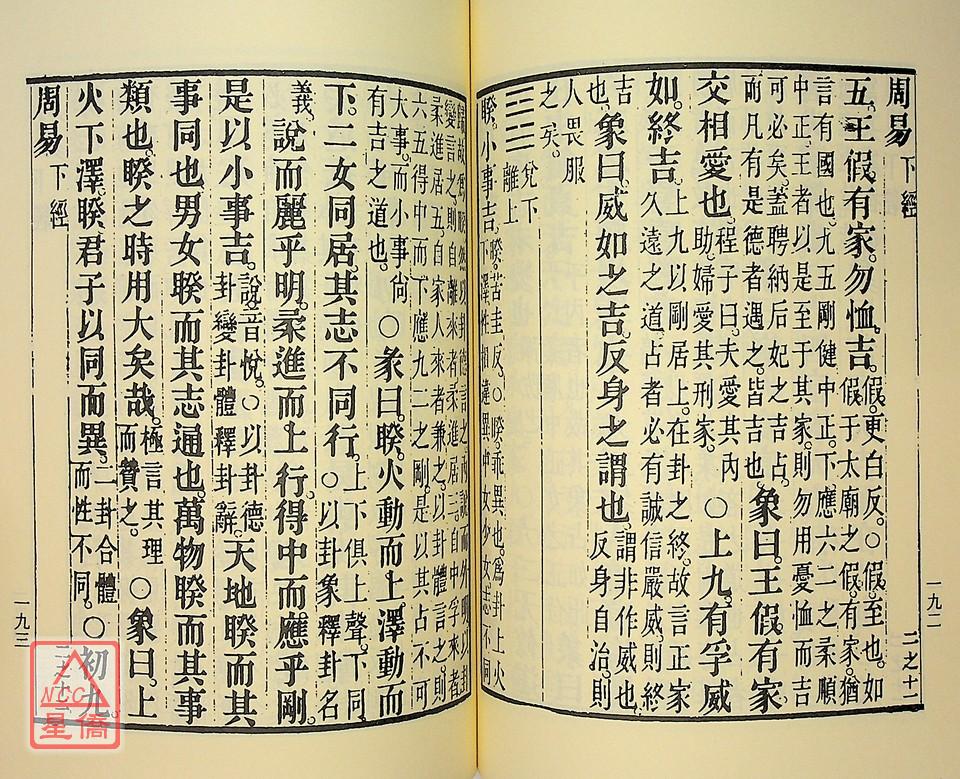 周易 下經 一九二 二之十二
五。王假有家。勿恤吉。
假。更白反。○假。至也。如
假于太廟之假。有家。猶
言有國也。九五剛健中正。下應六二之柔順
中正。王者以是至于其家。則勿用憂恤而吉
可必矣。蓋聘納后妃之吉占。
而凡有是德者遇之。皆吉也。
象曰。王假有家。
交相愛也。
程子曰。夫愛其內
助。婦愛其刑家。
○上九。有孚威
如。終吉。
上九以剛居上。在卦之終。故言正家
久遠之道。占者必有誠信嚴威。則終
吉
也。
象曰。威如之吉。反身之謂也。
謂非作威也。
反身自治。則
人畏服
之矣。
兌下
離上
睽。小事吉。
睽。苦圭反。○睽。乖異也。為卦上火
下澤。性相違異。中女少女。志不同
歸。故為睽。然以卦德言之。內說而外明。以卦
變言之。則自離來者。柔進居三。自中孚來者。
柔進居五。自家人來者兼之。以卦體言之。則
六五得中而下應九二之剛。是以其占不可
大事。而小事尙
有吉之道也。
○彖曰。睽。火動而上。澤動而
下。二女同居。其志不同行。
上下俱上聲。下同。
○以卦象釋卦名
義。
說而麗乎明。柔進而上行。得中而應乎剛。
是以小事吉。
說。音悅。○以卦德
卦變卦體釋卦辭。
天地睽而其
事同也。男女睽而其志通也。萬物睽而其事
類也。睽之時用大矣哉。
極言其理
而贊之。
○象曰。上
火下澤。睽。君子以同而異。
二卦合體
而性不同。
○初九。
周易 下經 一九三
NCC
星僑